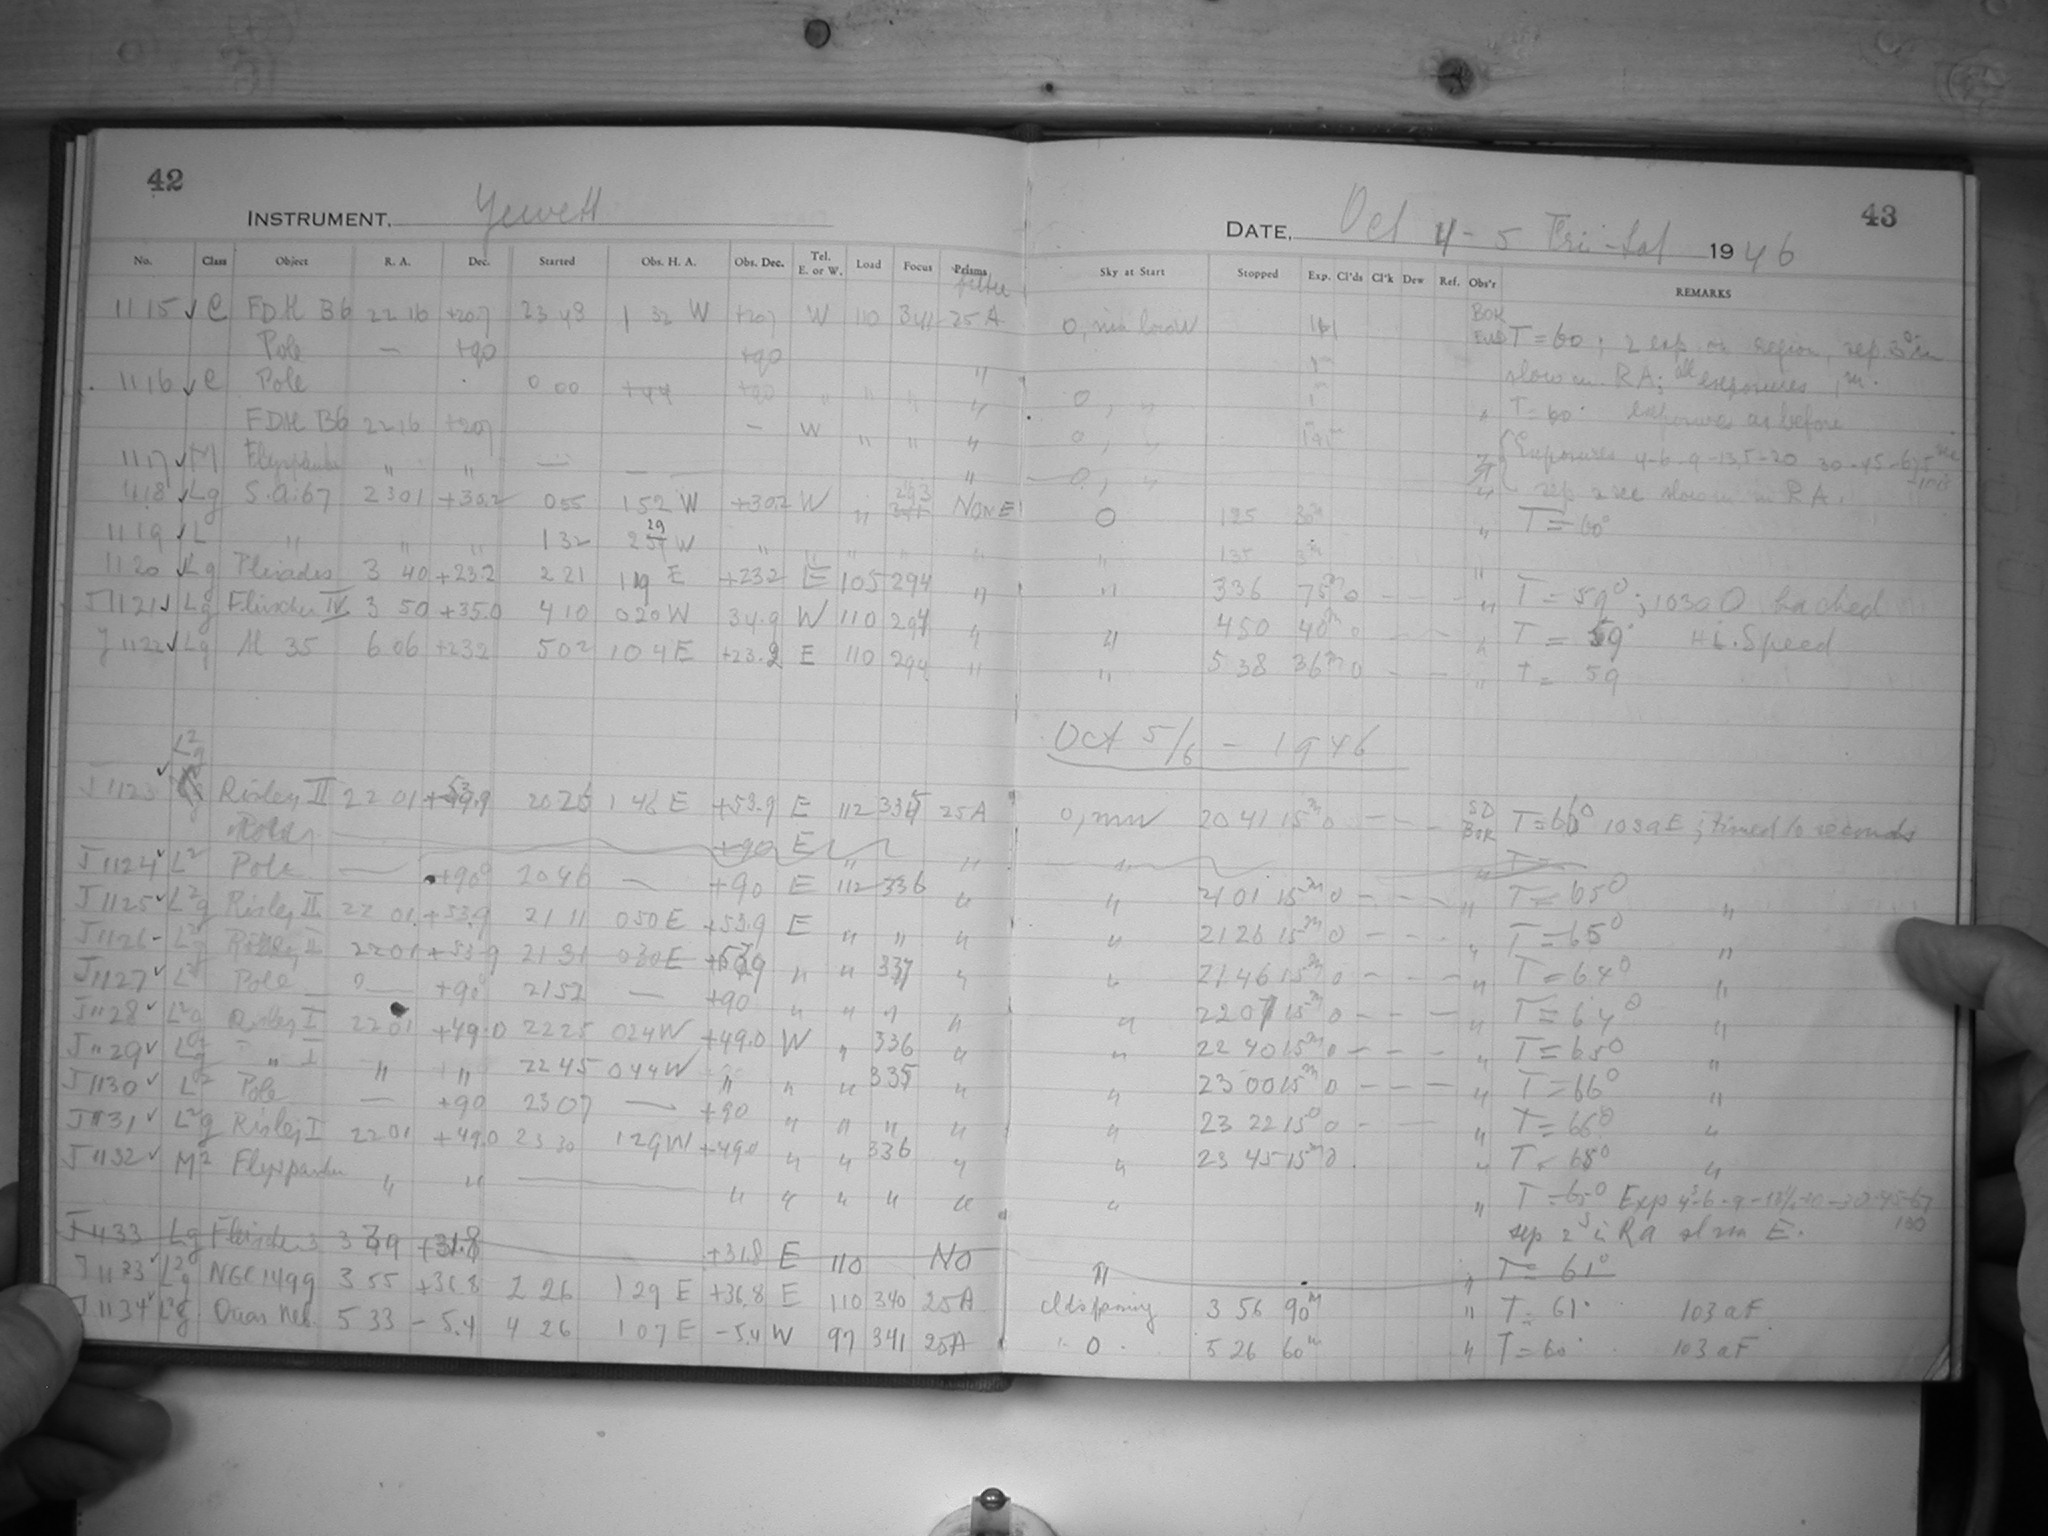 42
INSTRUMENT, Jewett
No. Class Object R. A. Dec. Started Obs. H. A. Obs. Dec. Tel. E. or W. Load Focus Prisms filter
1115 ✓ C FDH B6 22 16 +20.7 23 48 1 32 W +20.7 W 110 341 25A
Pole — +90 +90 "
1116 ✓ C Pole 0 00 +90 " " " "
FDH B6 22 16 +20.7 — W " " "
1117 ✓ M Flyspanker " " — — "
1118 ✓ Lg S.A. 67 23 01 +30.2 0 55 1 52 W +30.2 W " 293 NONE
1119 ✓ L " " " 1 32 2 29 W " " " " "
1120 ✓ Lg Pleiades 3 40 +23.2 2 21 1 19 E +23.2 E 105 294 "
J1121 ✓ Lg Fleischer IV 3 50 +35.0 4 10 0 20 W 34.9 W 110 294 "
J1122 ✓ Lg M 35 6 06 +23.2 5 02 1 04 E +23.2 E 110 294 "
J1123 ✓ L²g Risley II 22 01 +53.9 20 26 1 46 E +53.9 E 112 335 25A
+90 E " "
J1124 ✓ L² Pole — +90° 20 46 — +90 E 112 336 "
J1125 ✓ L²g Risley II 22 01 +53.9 21 11 0 50 E +53.9 E " " "
J1126 - L²g Risley II 22 01 +53.9 21 31 0 30 E +53.9 " " 337 "
J1127 ✓ L² Pole — +90° 21 52 — +90 " " " "
J1128 ✓ L²g Risley I 22 01 +49.0 22 25 0 24 W +49.0 W " 336 "
J1129 ✓ L²g " I " " 22 45 0 44 W " " " 335 "
J1130 ✓ L² Pole — +90 23 07 — +90 " " " "
J1131 ✓ L²g Risley I 22 01 +49.0 23 30 1 29 W +49.0 " " 336 "
J1132 ✓ M² Flyspanker " " — " " " " "
J1133 Lg Fleischer 3 3 39 +31.8 +31.8 E 110 No
J1133 ✓ L²g NGC 1499 3 55 +36.8 2 26 1 29 E +36.8 E 110 340 25A
J1134 ✓ L²g Orion Neb. 5 33 -5.4 4 26 1 07 E -5.4 W 97 341 25A
43
DATE, Oct 4 - 5 Fri - Sat 1946
Sky at Start Stopped Exp. Cl'ds Cl'k Dew Ref. Obs'r REMARKS
0, BOK T = 60; 2 exp. on region, sep
slow in RA; all exposures 1m.
0, " " T = 60° exposures as before
0, " Exposures 4-6-9-13.5-20 30-45-67.5
0, " " sep 2 sec slow in RA.
0 1 25 30m " T = 60°
" 1 35 3m "
" 3 36 75m 0 - - - " T = 59°; 103a O backed
" 4 50 40m 0 - - " T = 59° Hi. Speed
" 5 38 36m 0 - - - " T = 59
Oct 5/6 - 1946
0, 20 41 15m 0 - - - SD BOK T = 103a E; timed to seconds
" " T =
" 21 01 15m 0 - - - " T = 65° "
" 21 26 15m 0 - - - " T = 65° "
" 21 46 15m 0 - - - " T = 64° "
" 22 07 15m 0 - - - " T = 64° "
" 22 40 15m 0 - - - " T = 65° "
" 23 00 15m 0 - - - " T = 66° "
" 23 22 15 0 - - " T = 66° "
" 23 45 15m 0 " T = "
" " T = 65° Exp 4s-6-9-13½-20-30-45-67
sep 2s in Ra slow E. 100
" " T = 61°
3 56 90m " T = 61° 103aF
0 5 26 60m " T = 60° 103aF